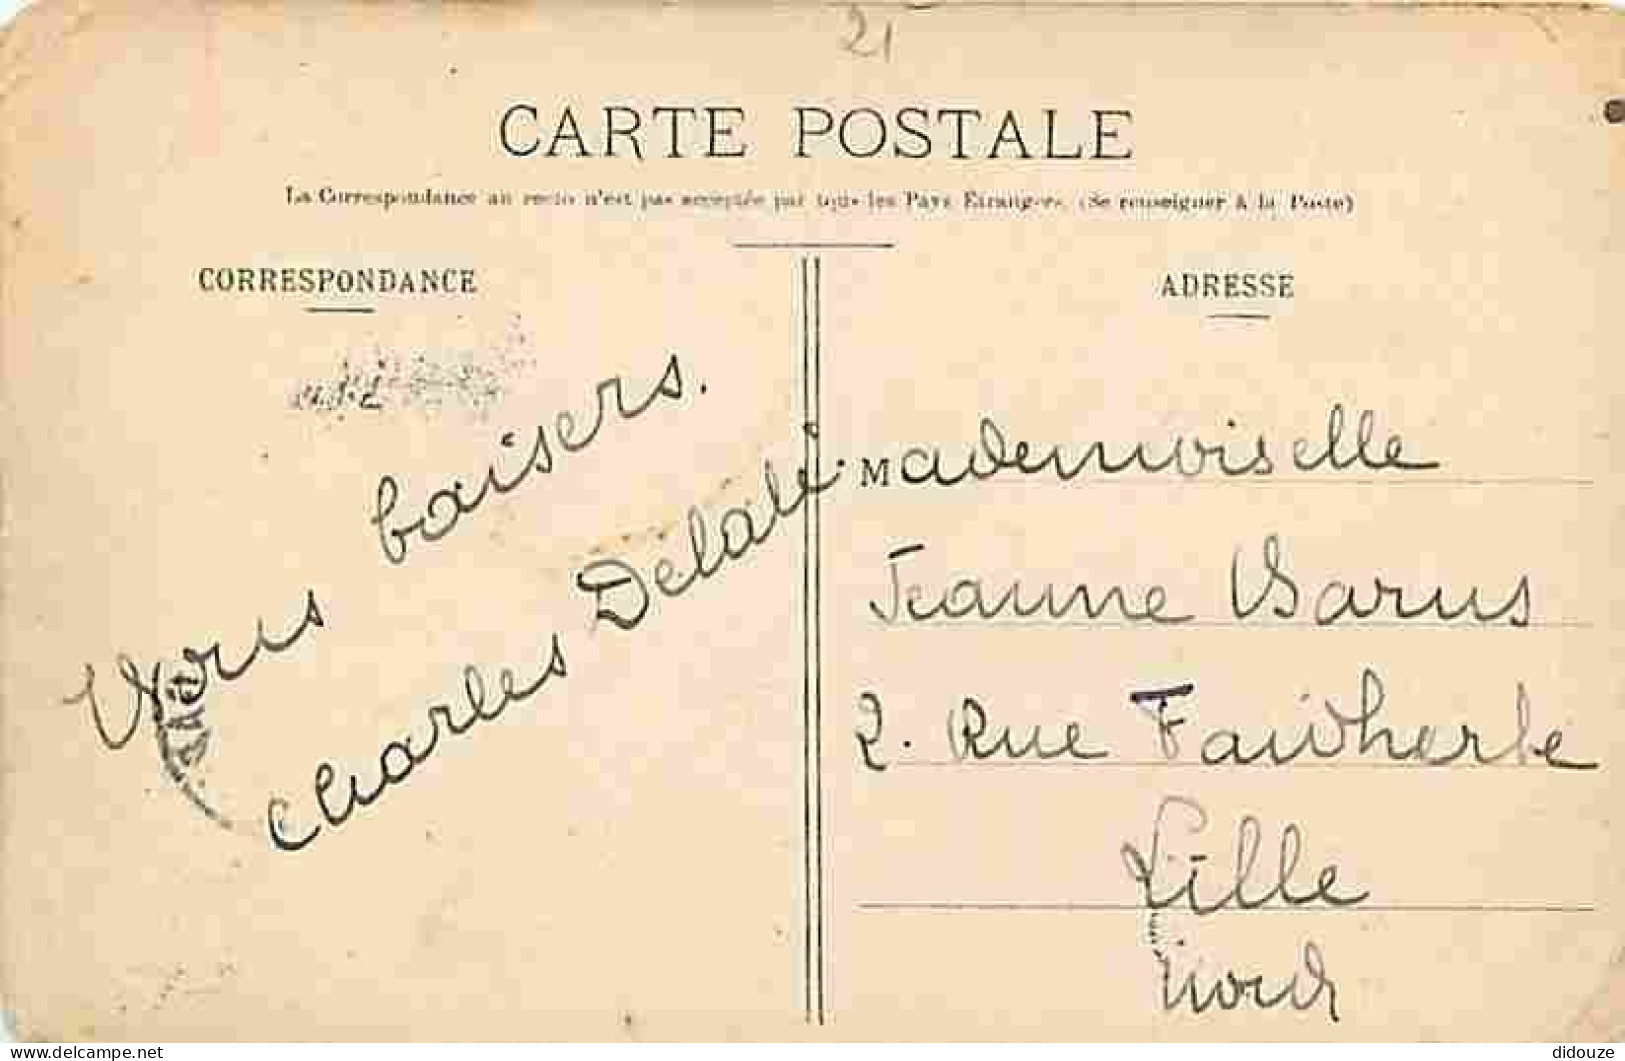 21
CARTE POSTALE
La Correspondance au recto n'est pas acceptée par tous les Pays Etrangers. (Se renseigner à la Poste)
CORRESPONDANCE
Vous baisers.
Charles Delabi
ADRESSE
Mademoiselle
Jeanne Barus
2. Rue Faidherbe
Lille
Nord
delcampe.net
didouze